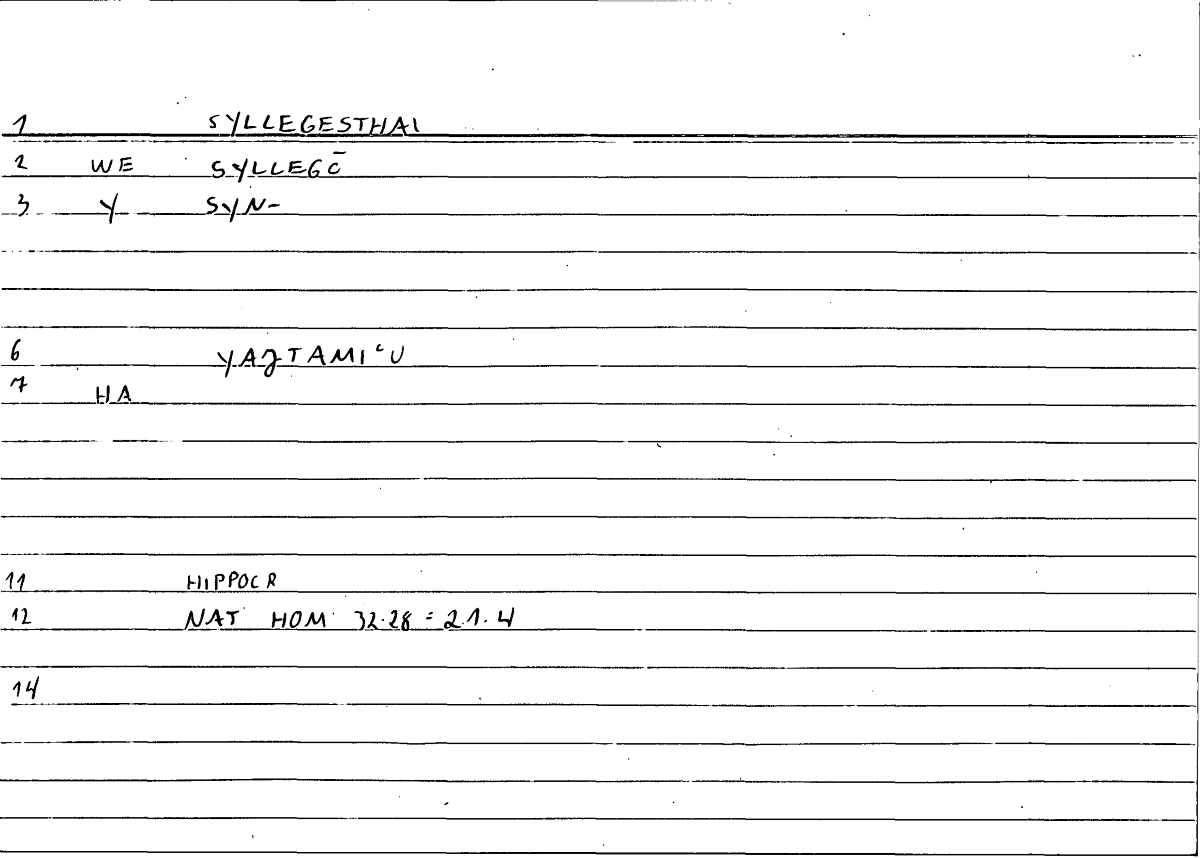 1 SYLLEGESTHAI
2 WE SYLLEGŌ
3 Y SYN-
6 YAJTAMIʿU
7 HA
11 HIPPOCR
12 NAT HOM 32.28 = 21.4
14